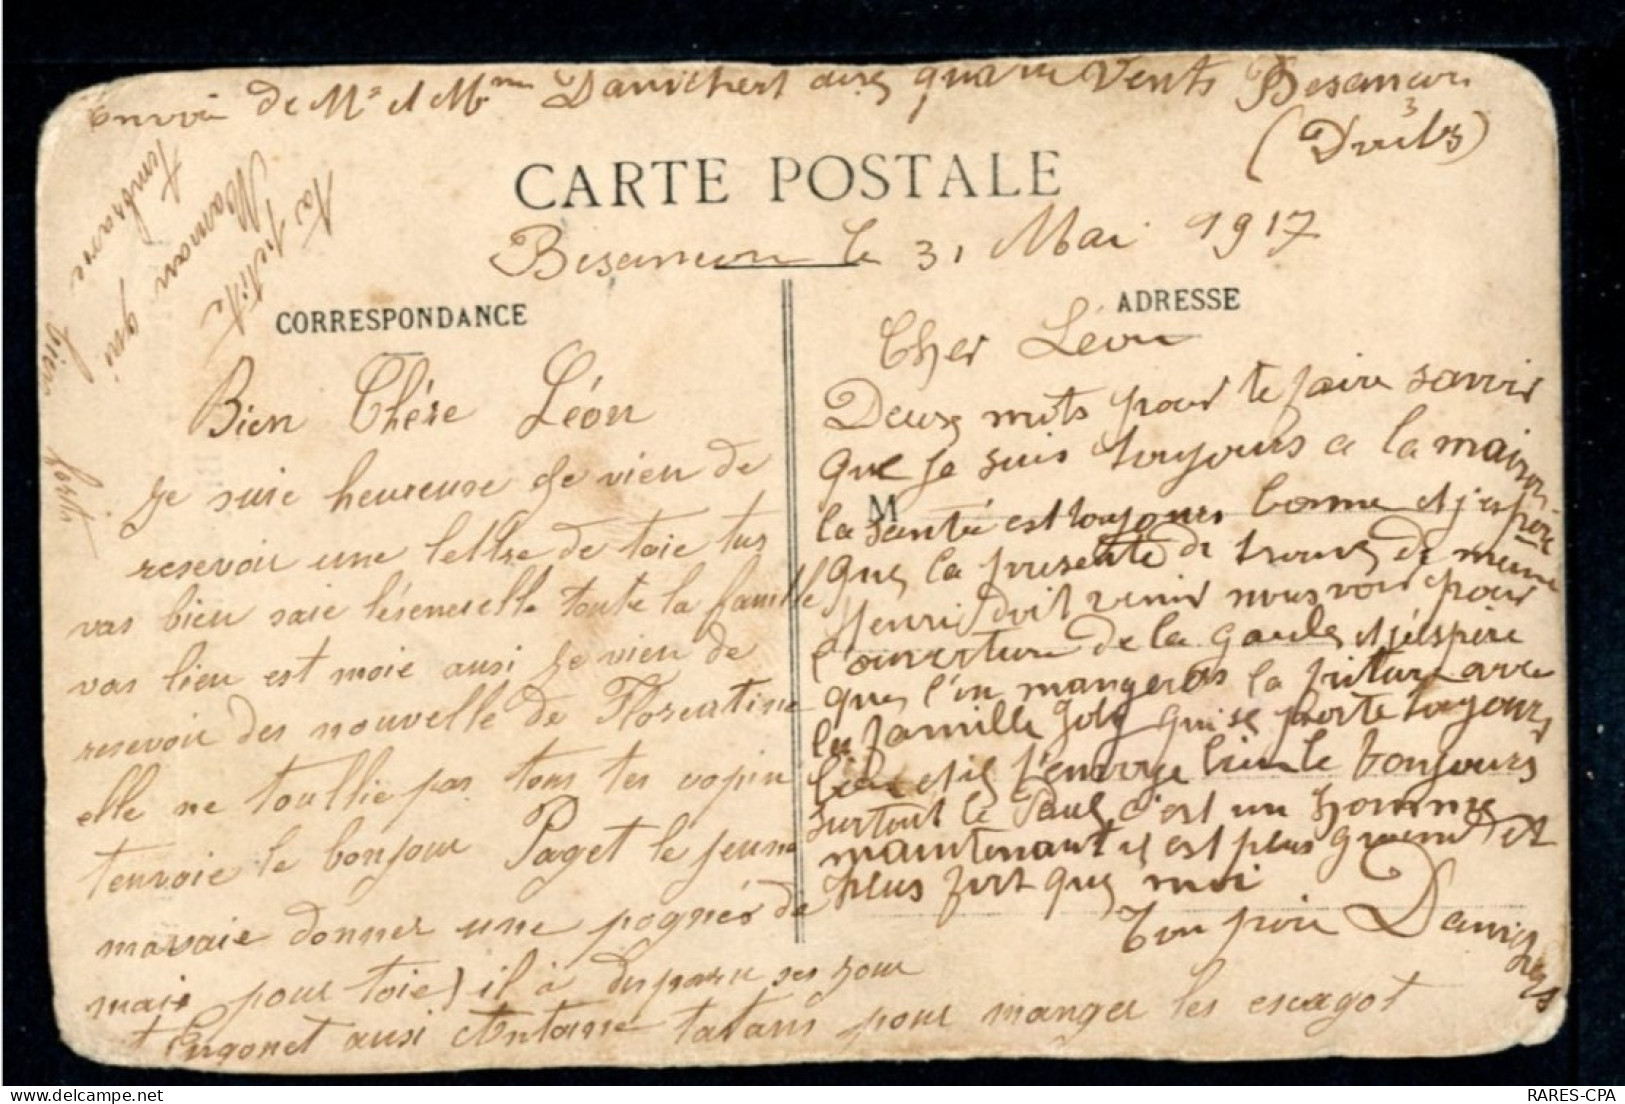 Envoi de Mr et Mme Danichert aux quatre Vents Besancon
(Doubs)
CARTE POSTALE
Besancon le 31 Mai 1917
CORRESPONDANCE
Bien Chére Léon
Je suie heureuse Je vien de
resevoir une lettre de toie tus
vas bien saie lésencielle toute la famille
vas bien est moie ausi Je vien de
resevoir des nouvelle de Florentine
elle ne toublie pas tous tes copin
tenvoie le bonjour Paget le jeune
mavaie donner une pognés de
maie pour toie) il à disparu ses jour
Pugonet ausi Antoine tatans pour manger les escagot
Ta petite
Maman qui
tembrasse
bien
fort
ADRESSE
M
Cher Léon
Deux mots pour te faire savoir
que je suis toujours a la maison
la santé est toujours bonne et j'espère
que la présente te trouve de meme
Henri doit venir nous voir pour
l'ouverture de la gaule et j'éspère
que l'on mangeras la friture avec
la famille Joly qui se porte toujours
bien et il t'envoye bien le bonjours
surtout le Paul c'est un homme
maintenant il est plus grand et
plus fort que moi
Ton père Danichert
RARES-CPA